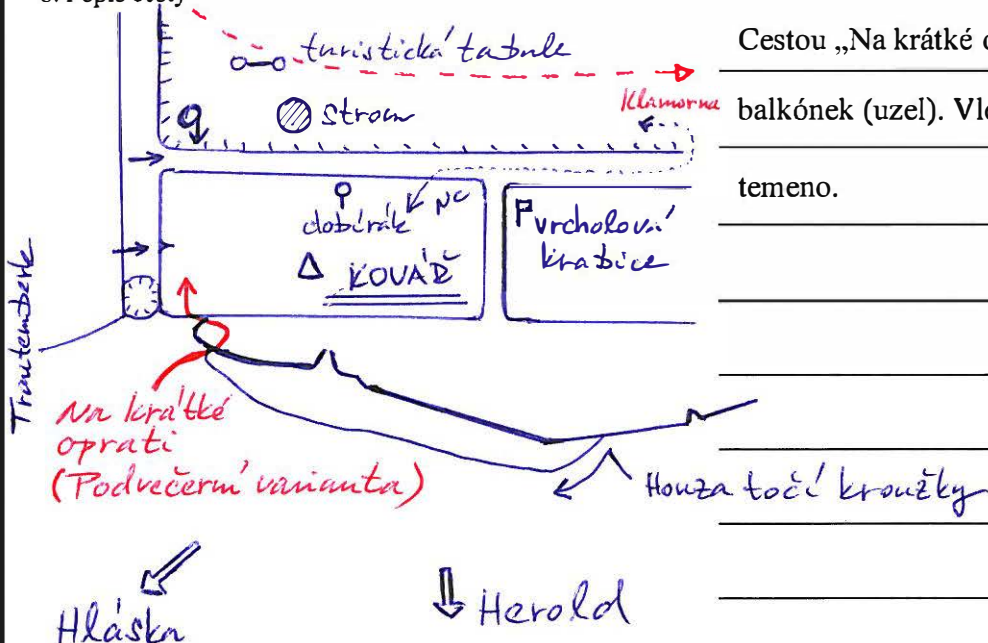 turistická tabule
strom
Klamorna
dobírák
NC
KOVÁŘ
vrcholová
krabice
Trautenberk
Na krátké
oprati
(Podvečerní varianta)
Houza točí kroužky
Hláska
Herold
Cestou „Na krátké
balkónek (uzel).
temeno.